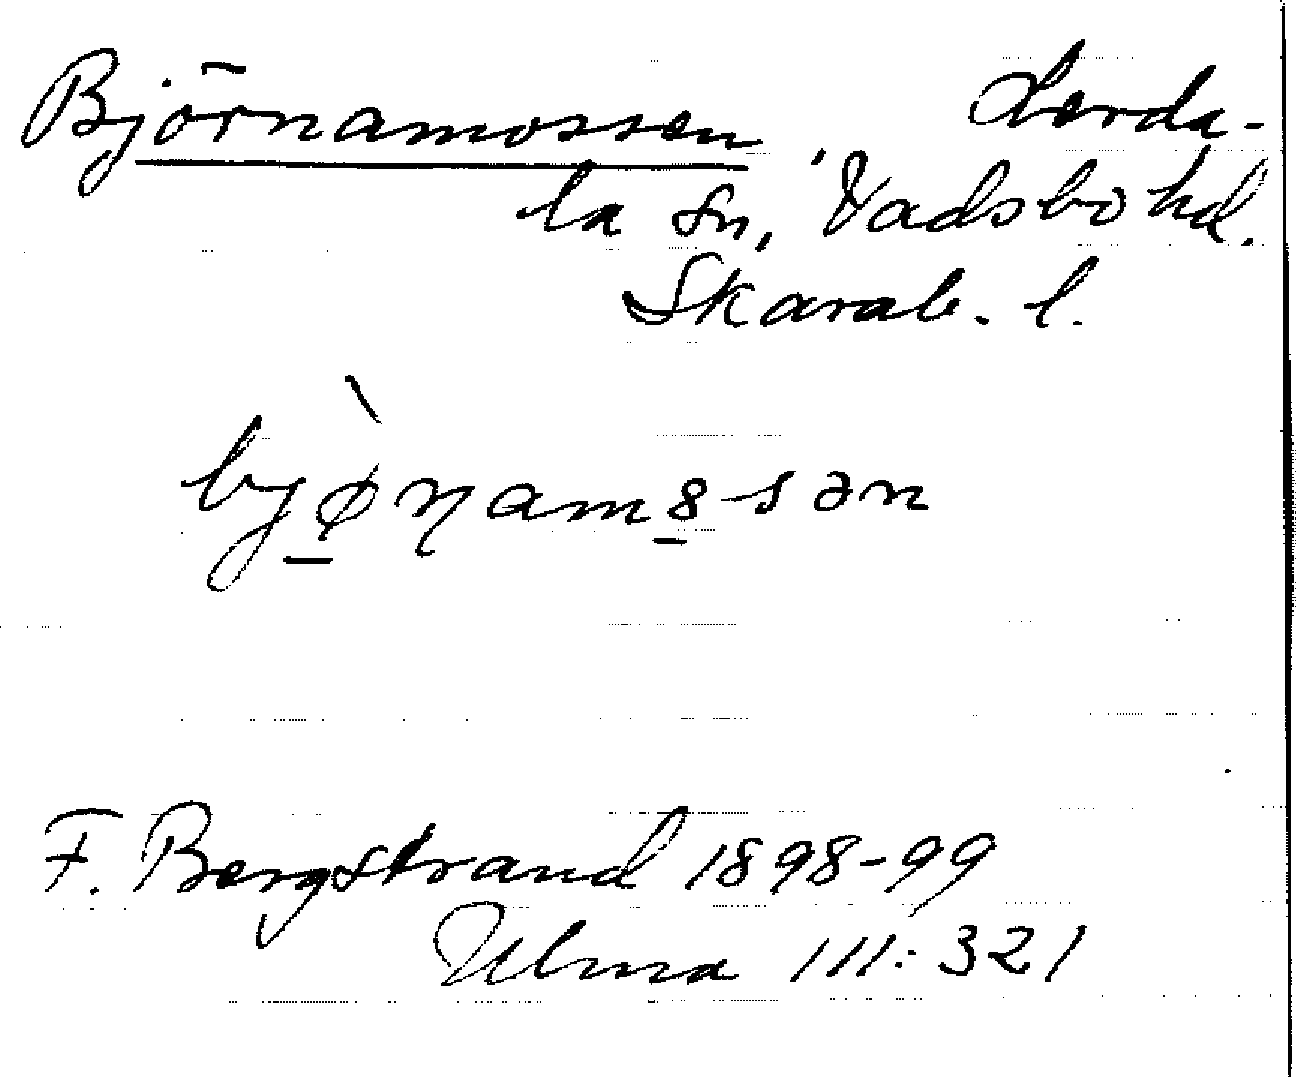 Björnamossen, Lerda-
la sn, Vadsbo hd.
Skarab. l.
F. Bergstrand 1898-99
Ulma 111:321